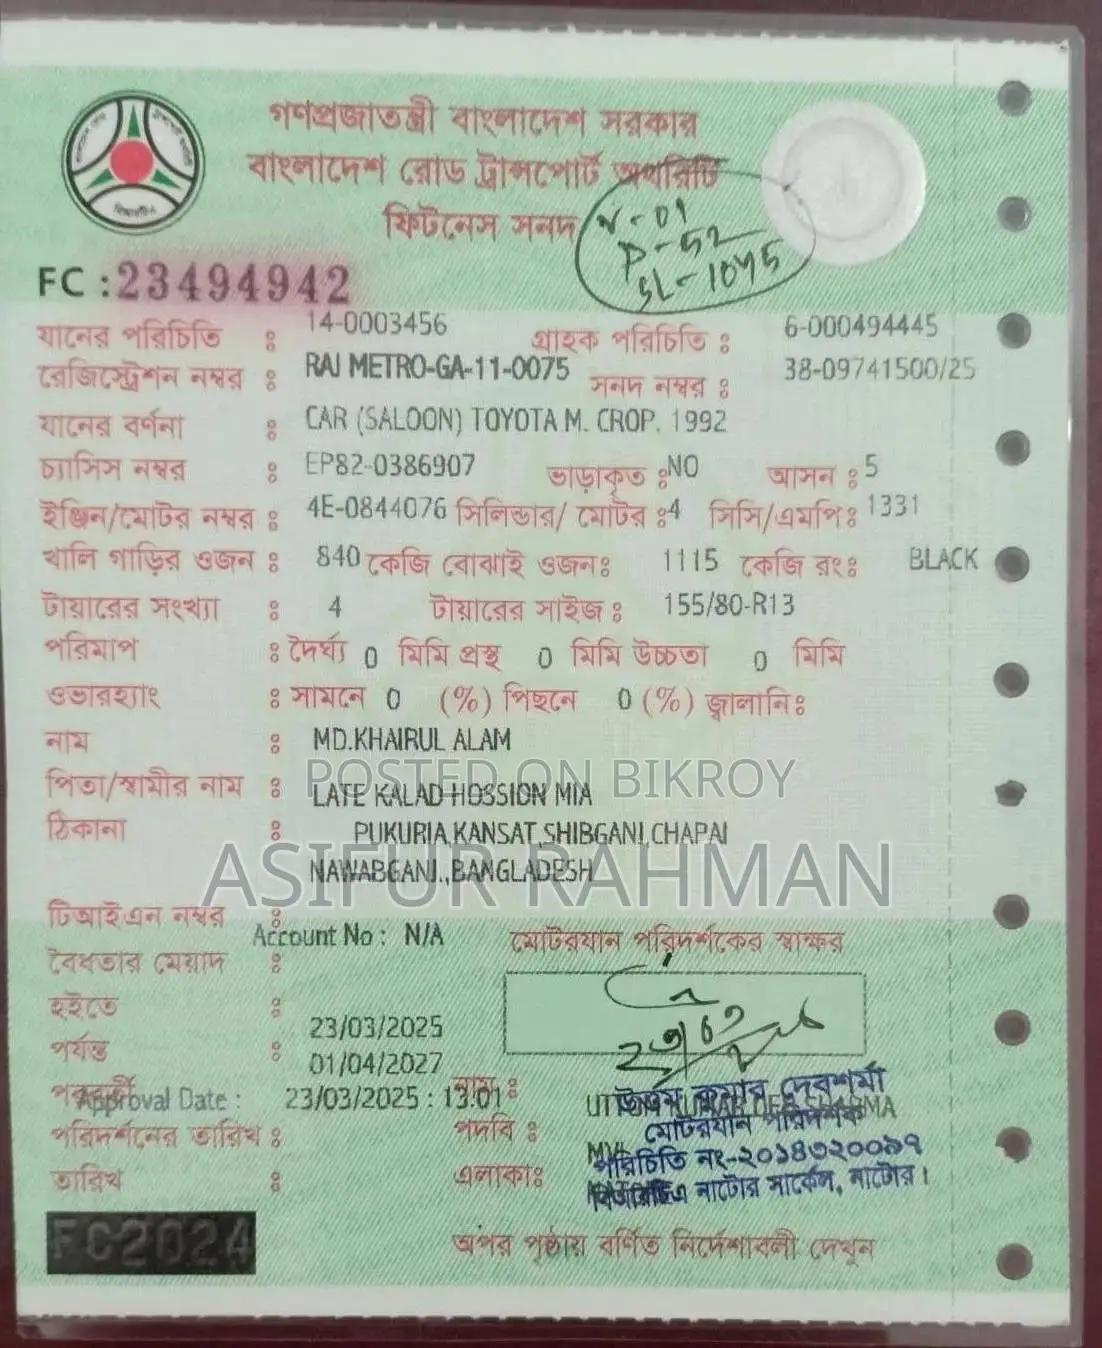 গণপ্রজাতন্ত্রী বাংলাদেশ সরকার
বাংলাদেশ রোড ট্রান্সপোর্ট অথরিটি
ফিটনেস সনদ
V-01
P-52
SL-1045
FC :23494942
যানের পরিচিতি : 14-0003456 গ্রাহক পরিচিতি : 6-000494445
রেজিস্ট্রেশন নম্বর : RAJ METRO-GA-11-0075 সনদ নম্বর : 38-09741500/25
যানের বর্ণনা : CAR (SALOON) TOYOTA M. CROP. 1992
চ্যাসিস নম্বর : EP82-0386907 ভাড়াকৃত : NO আসন : 5
ইঞ্জিন/মোটর নম্বর : 4E-0844076 সিলিন্ডার/ মোটর : 4 সিসি/এমপি : 1331
খালি গাড়ির ওজন : 840 কেজি বোঝাই ওজন : 1115 কেজি রং : BLACK
টায়ারের সংখ্যা : 4 টায়ারের সাইজ : 155/80-R13
পরিমাপ : দৈর্ঘ্য 0 মিমি প্রস্থ 0 মিমি উচ্চতা 0 মিমি
ওভারহ্যাং : সামনে 0 (%) পিছনে 0 (%) জ্বালানি :
নাম : MD.KHAIRUL ALAM
POSTED ON BIKROY
পিতা/স্বামীর নাম : LATE KALAD HOSSION MIA
ঠিকানা : PUKURIA,KANSAT,SHIBGANJ,CHAPAI
ASIFUR RAHMAN
NAWABGANJ.,BANGLADESH
টিআইএন নম্বর :
Account No : N/A মোটরযান পরিদর্শকের স্বাক্ষর
বৈধতার মেয়াদ :
হইতে : 23/03/2025
পর্যন্ত : 01/04/2027
পরবর্তী নাম :
Approval Date : 23/03/2025 : 13:01
উত্তম কুমার দেবশর্মা
পরিদর্শনের তারিখ : পদবি : মোটরযান পরিদর্শক
পরিচিতি নং-২০১৪৩২০০৯৭
তারিখ : এলাকা : বিআরটিএ নাটোর সার্কেল, নাটোর।
FC2024
অপর পৃষ্ঠায় বর্ণিত নির্দেশাবলী দেখুন